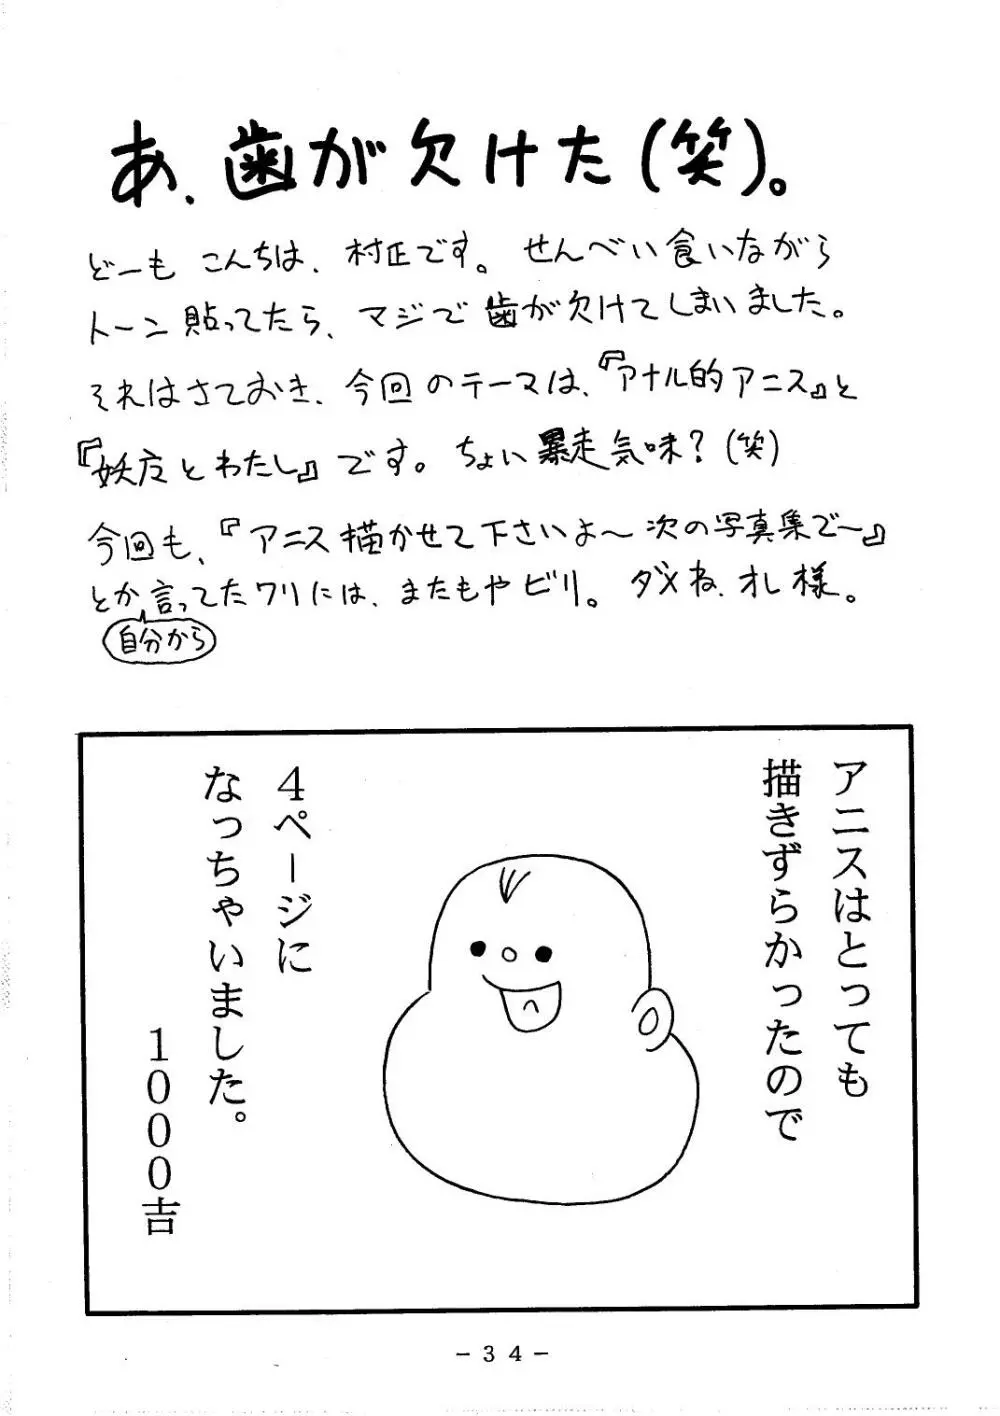 あ、歯が欠けた(笑)。
どーも こんちは、村正です。せんべい食いながら
トーン貼ってたら、マジで歯が欠けてしまいました。
それはさておき、今回のテーマは、『アナル的アニス』と
『妖方とわたし』です。ちょい暴走気味?(笑)
今回も、『アニス描かせて下さいよ〜次の写真集で〜』
とか言ってたワリには、またもやビリ。ダメね、オレ様。
自分から
アニスはとっても
描きずらかったので
4ページに
なっちゃいました。
1000吉
-34-